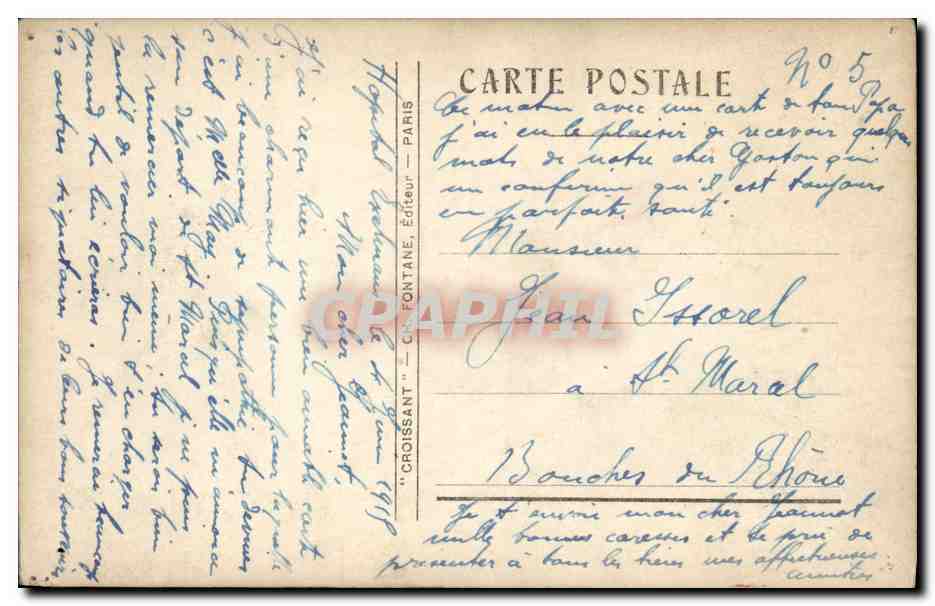 CARTE POSTALE
"CROISSANT" — CH. FONTANE, Éditeur — PARIS
CPAPHIL
N° 5
Hopital le 4 Juin 1918
Mon cher Jeannot,
J'ai reçu hier une bien aimable carte
d'une charmante personne pour laquelle
j'ai beaucoup de sympathie tu devines
c'est Melle puisqu'elle m'annonce
son départ de St Marcel je ne puis
la remercier moi même tu serais bien
gentil de vouloir bien t'en charger
quand tu lui écriras. Je remercie
les autres signataires de leurs bons
Ce matin avec une carte de ton Papa
j'ai eu le plaisir de recevoir quelques
mots de notre cher Gaston qui
me confirme qu'il est toujours
en parfaite santé
Monsieur
Jean Issorel
à St Marcel
Bouches du Rhône
Je t'envoie mon cher Jeannot
mille bonnes caresses et te prie de
présenter à tous les tiens mes affectueuses
amitiés